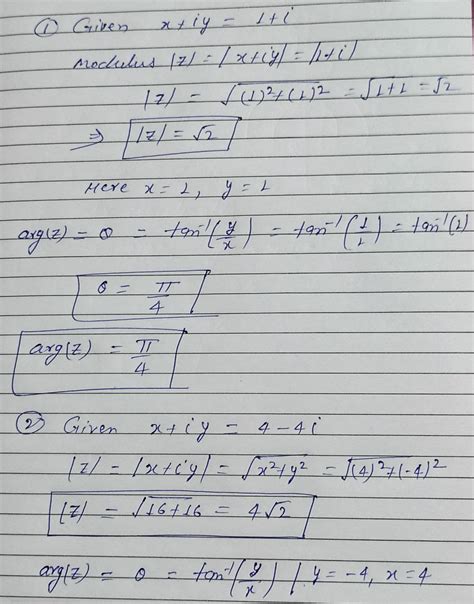 ① Given x+iy = 1+i
Modulus |z| = |x+iy| = |1+i|
|z| = √(1)²+(1)² = √1+1 = √2
⇒ |z| = √2
Here x = 1, y = 1
arg(z) = θ = tan⁻¹(y/x) = tan⁻¹(1/1) = tan⁻¹(1)
θ = π/4
arg(z) = π/4
② Given x+iy = 4-4i
|z| = |x+iy| = √x²+y² = √(4)²+(-4)²
|z| = √16+16 = 4√2
arg(z) = θ = tan⁻¹(y/x) | y = -4, x = 4